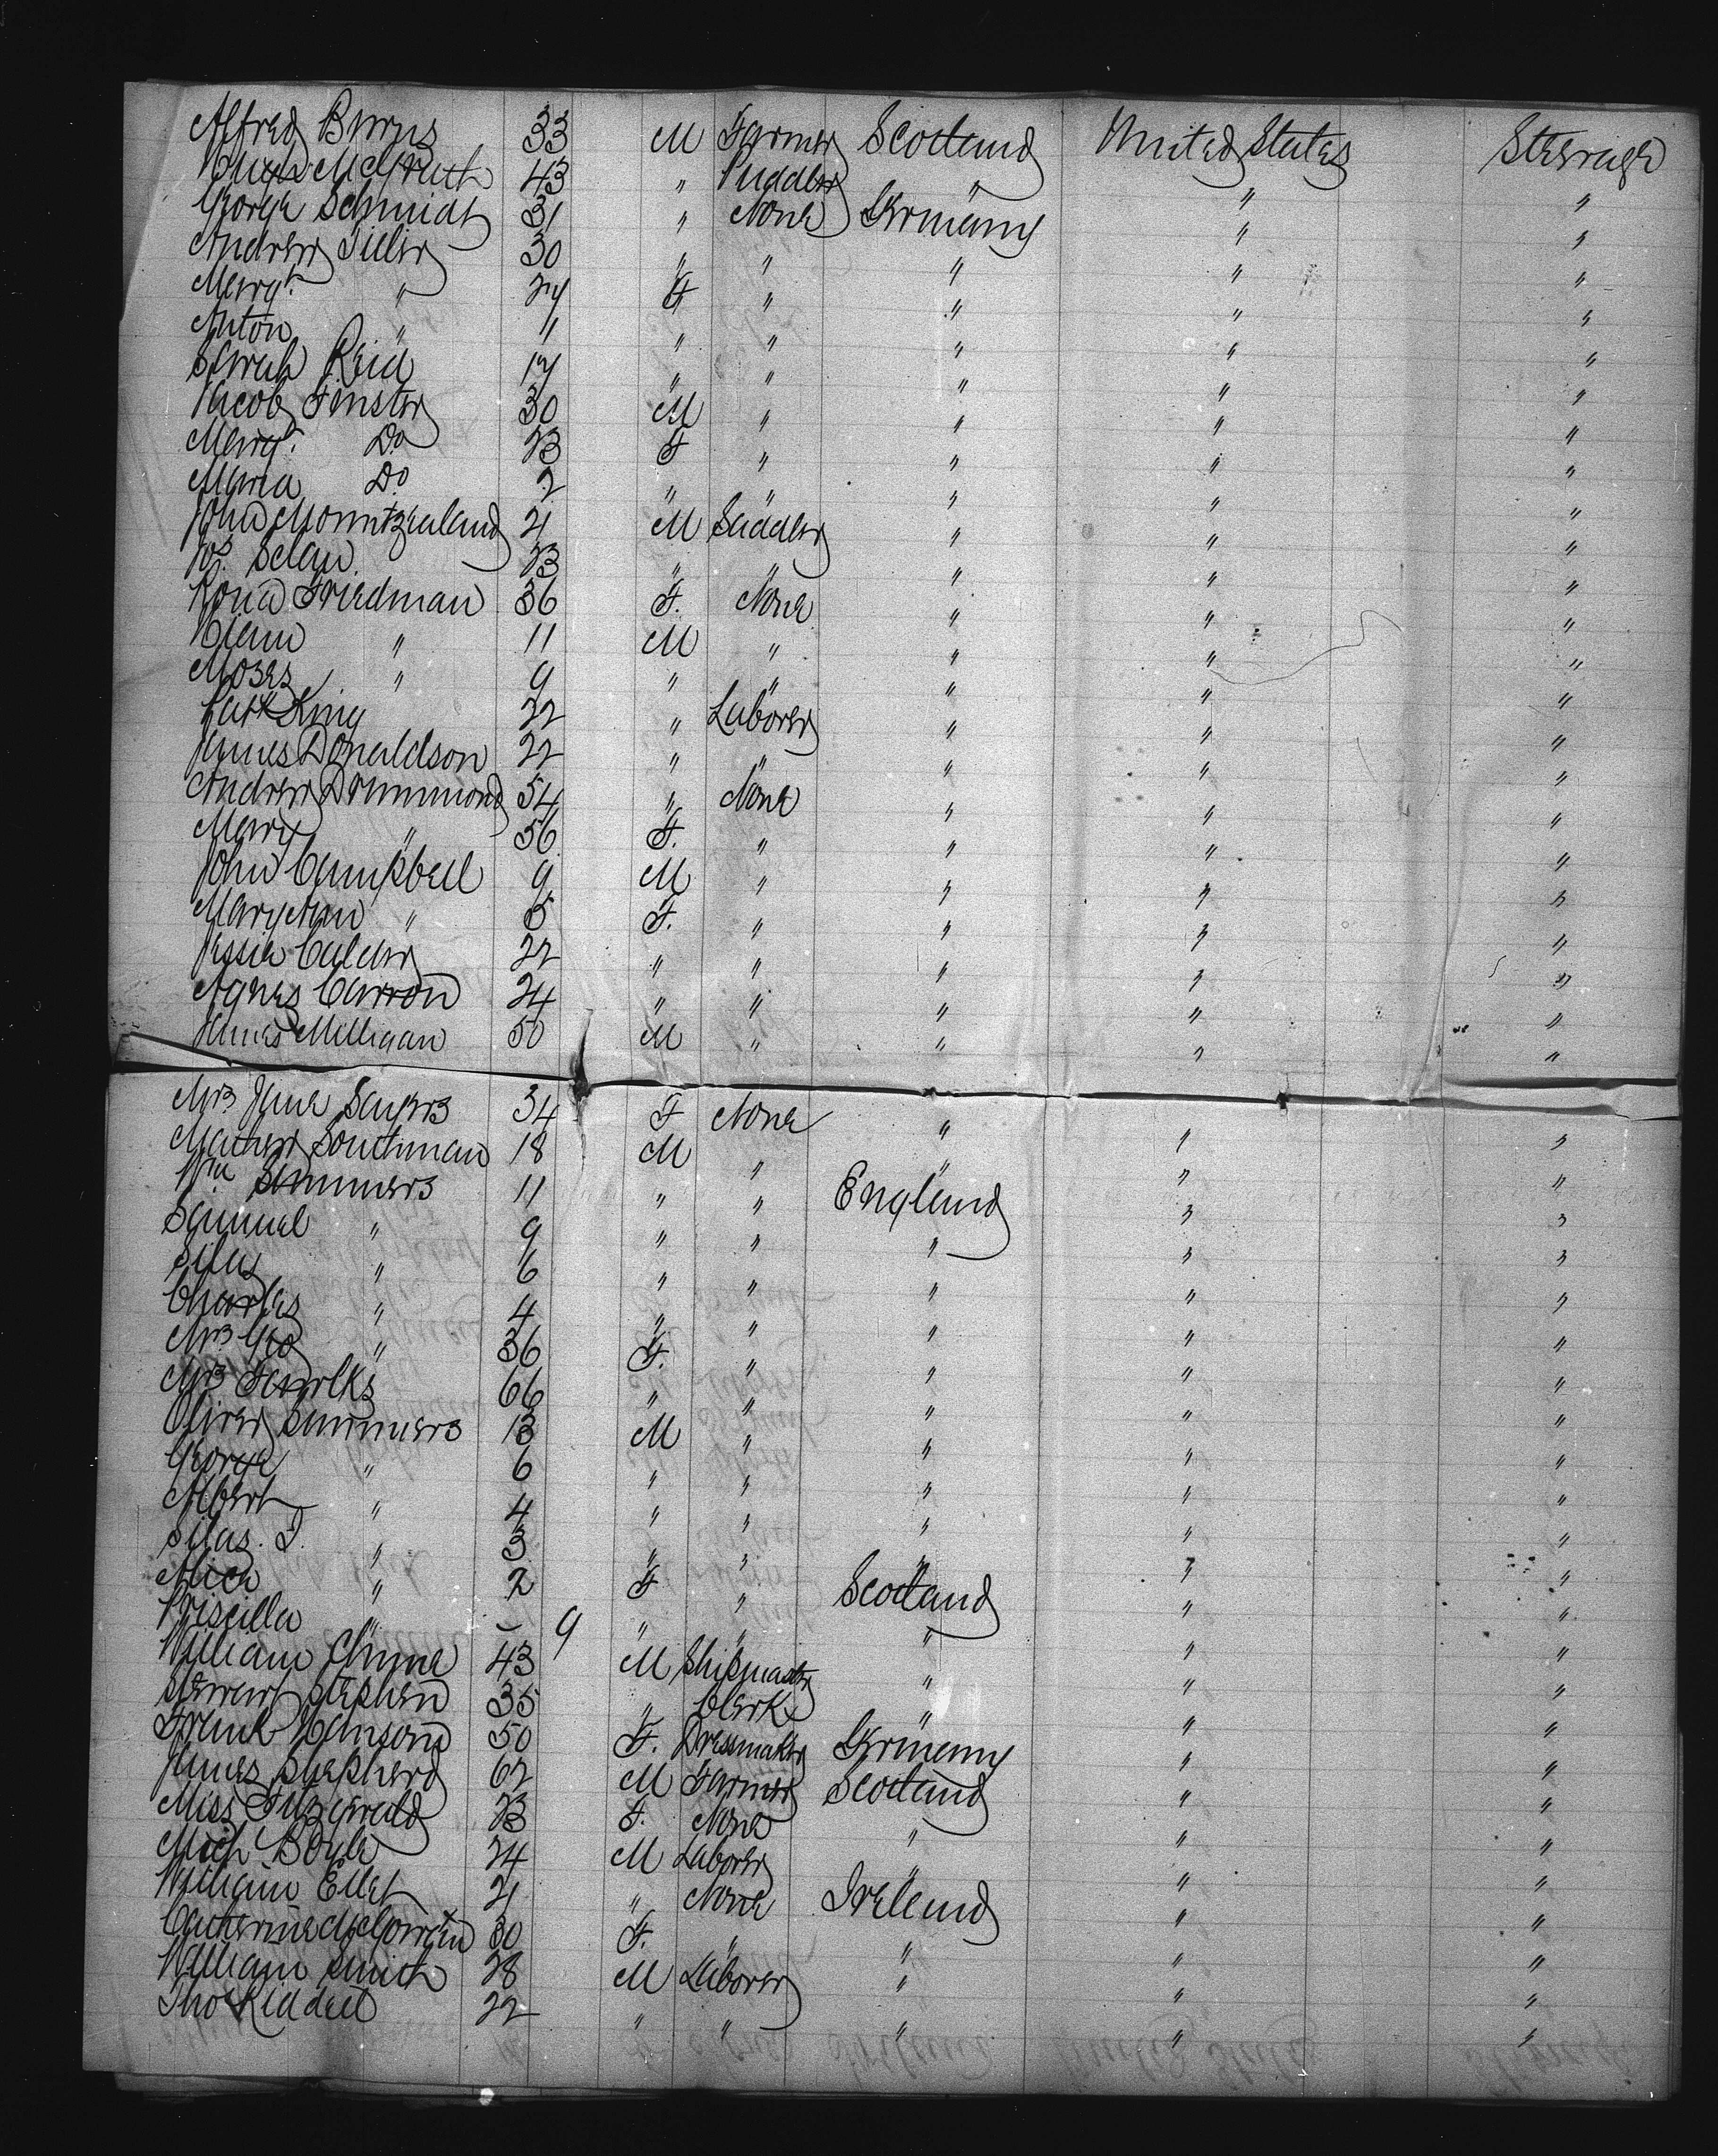 Alfred Burns 33 M Farmer Scotland United States Steerage
McGrath 43 " Puddler " " "
George Schmidt 31 " None Germany " "
Andrew 30 " " " " "
Margt. " 27 F " " " "
Anton " 11 " " " " "
Sarah Reid 17 " " " " "
Jacob Finster 30 M " " " "
Margt. Do 23 F " " " "
Maria Do 2 " " " " "
John 21 M Saddler " " "
Jos. 23 " " " " "
Rosia Friedman 36 F. None " " "
" 11 M " " " "
Mozes " 9 " " " " "
King 22 " Laborer " " "
James Donaldson 22 " " " " "
Andrew Drummond 54 " None " " "
Mary " 56 F. " " " "
John Campbell 9 M " " " "
Mary Ann " 5 F. " " " "
Jessie Calder 22 " " " " "
Agnes Carron 24 " " " " "
James Milligan 50 M " " " "
Mrs Jane Sayers 34 F None " " "
Mathew Southman 18 M " " " "
Wm Summers 11 " " England " "
Samuel " 9 " " " " "
Silas " 6 " " " " "
Charles " 4 " " " " "
Mrs Geo " 36 F. " " " "
Mrs 66 " " " " "
Oliver Summers 13 M " " " "
George " 6 " " " " "
Albert " 4 " " " " "
Silas. I. " 3 " " " " "
Alice " 2 F " Scotland " "
Priscilla " - 9 " " " " "
William Chyne 43 M Shipmaster " " "
Stewart Stephen 35 " Clerk " " "
Frank Hanson 50 F. Dressmaker Germany " "
James Shepherd 62 M Farmer Scotland " "
Miss Fitzgerald 23 F. None " " "
Mich Boyle 24 M Laborer " " "
William Ellet 21 " None Ireland " "
Catherine McGowan 30 F. " " " "
William Smith 28 M Laborer " " "
Thos Riddell 22 " " " " "